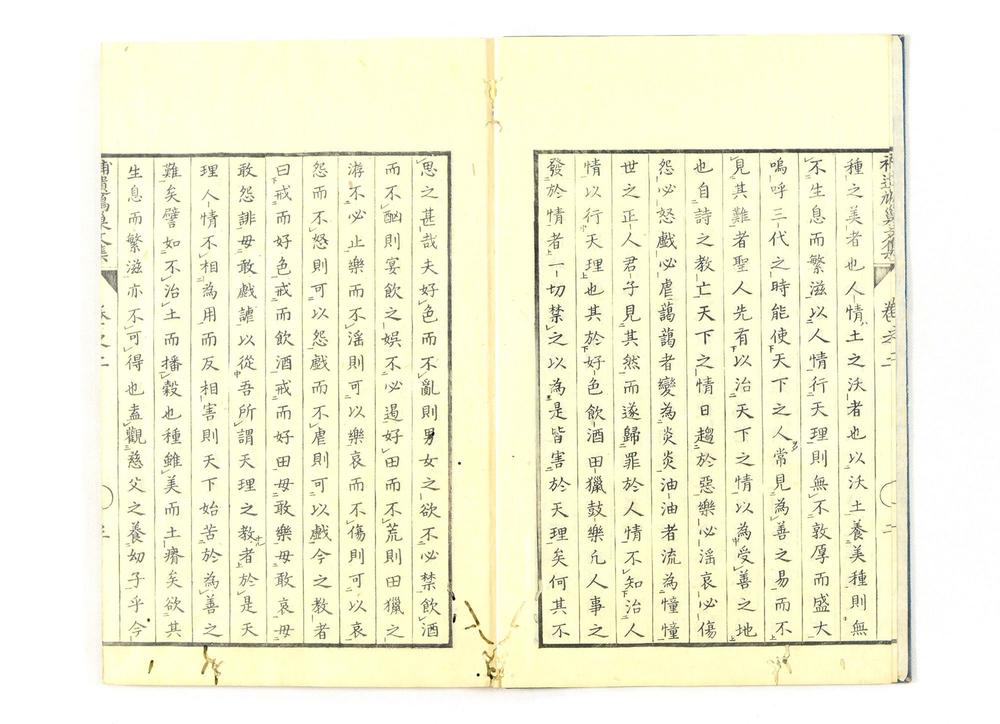 種之美者也人情土之沃者也以沃土養美種則無
不生息而繁滋以人情行天理則無不敦厚而盛大
嗚呼三代之時能使天下之人常見為善之易而不
見其難者聖人先有以治天下之情以為受善之地
也自詩之教亡天下之情日趨於惡樂必滛哀必傷
怨必怒戲必虐藹藹者變為炎炎油油者流為憧憧
世之正人君子見其然而遂歸罪於人情不知治人
情以行天理也其於好色飲酒田獵鼓樂凡人事之
發於情者一切禁之以為是皆害於天理矣何其不
思之甚哉夫好色而不亂則男女之欲不必禁飲酒
而不酗則宴飲之娯不必遏好田而不荒則田獵之
游不必止樂而不滛則可以樂哀而不傷則可以哀
怨而不怒則可以怨戲而不虐則可以戲今之教者
曰戒而好色戒而飲酒戒而好田毋敢樂毋敢哀毋
敢怨誹毋敢戲謔以從吾所謂天理之教者於是天
理人情不相為用而反相害則天下始苦於為善之
難矣譬如不治土而播穀也種雖美而土瘠矣欲其
生息而繁滋亦不可得也盍觀慈父之養幼子乎今